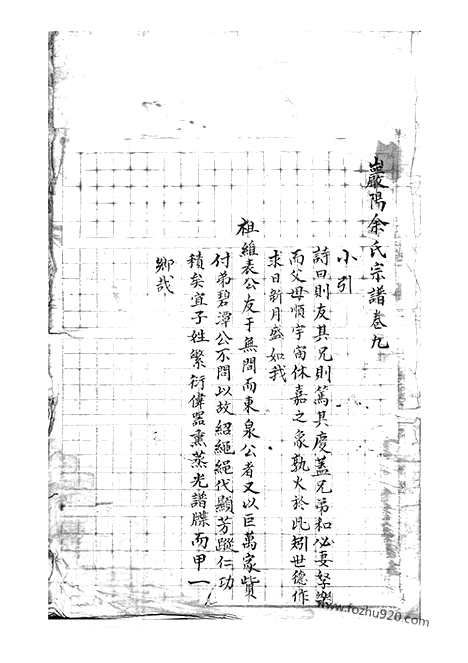 巖陽余氏宗譜卷九
小引
詩曰則友其兄則篤其慶蓋兄弟和必妻孥樂
而父母順宇宙休嘉之象孰大於此矧世德作
求日新月盛如我
祖維表公友于無間而東泉公者又以巨萬家貲
付弟碧潭公不問以故紹繩繩代顯芳蹤仁功
積矣宜子姓繁衍偉器熏蒸光譜牒而甲一
鄉哉
www.fozhu920.com